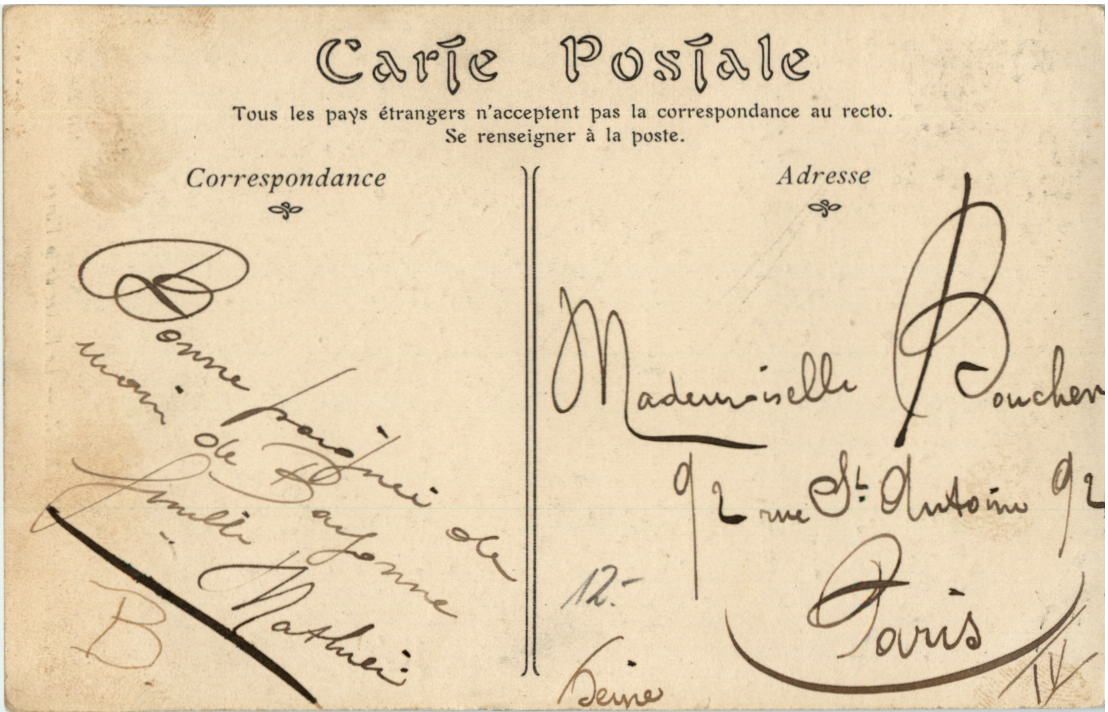 Carte Postale
Tous les pays étrangers n'acceptent pas la correspondance au recto.
Se renseigner à la poste.
Correspondance
Bonne poignée de
main de Bayonne
Mathieu
B
Adresse
Mademoiselle Boucher
92 rue St. Antoine 92
Paris
IV
12.-
Seine